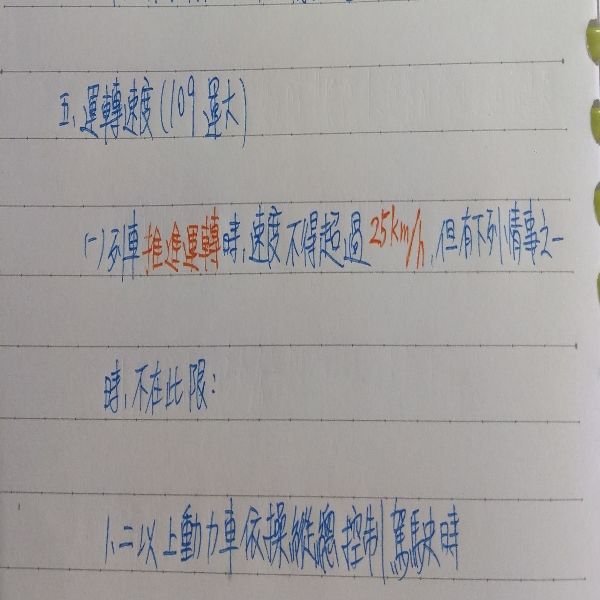 五、運轉速度(109 運大)
(一)列車推進運轉時,速度不得超過25km/h,但有下列情事之一
時,不在此限:
1、二以上動力車依操縱總控制駕駛時